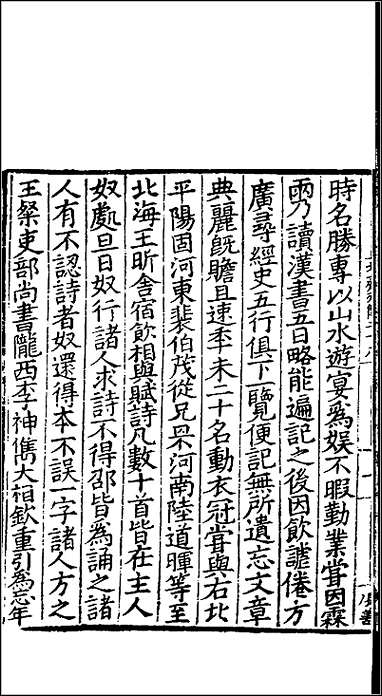 時名勝專以山水遊宴爲娛不暇勤業甞因霖
雨乃讀漢書五日略能遍記之後因飲謔倦方
廣尋經史五行俱下一覽便記無所遺忘文章
典麗旣贍且速年未二十名動衣冠甞與右北
平陽固河東裴伯茂從兄罘河南陸道暉等至
北海王昕舍宿飲相與賦詩凡數十首皆在主人
奴處旦日奴行諸人求詩不得邵皆爲誦之諸
人有不認詩者奴還得本不誤一字諸人方之
王粲吏部尚書隴西李神儁大相欽重引爲忘年